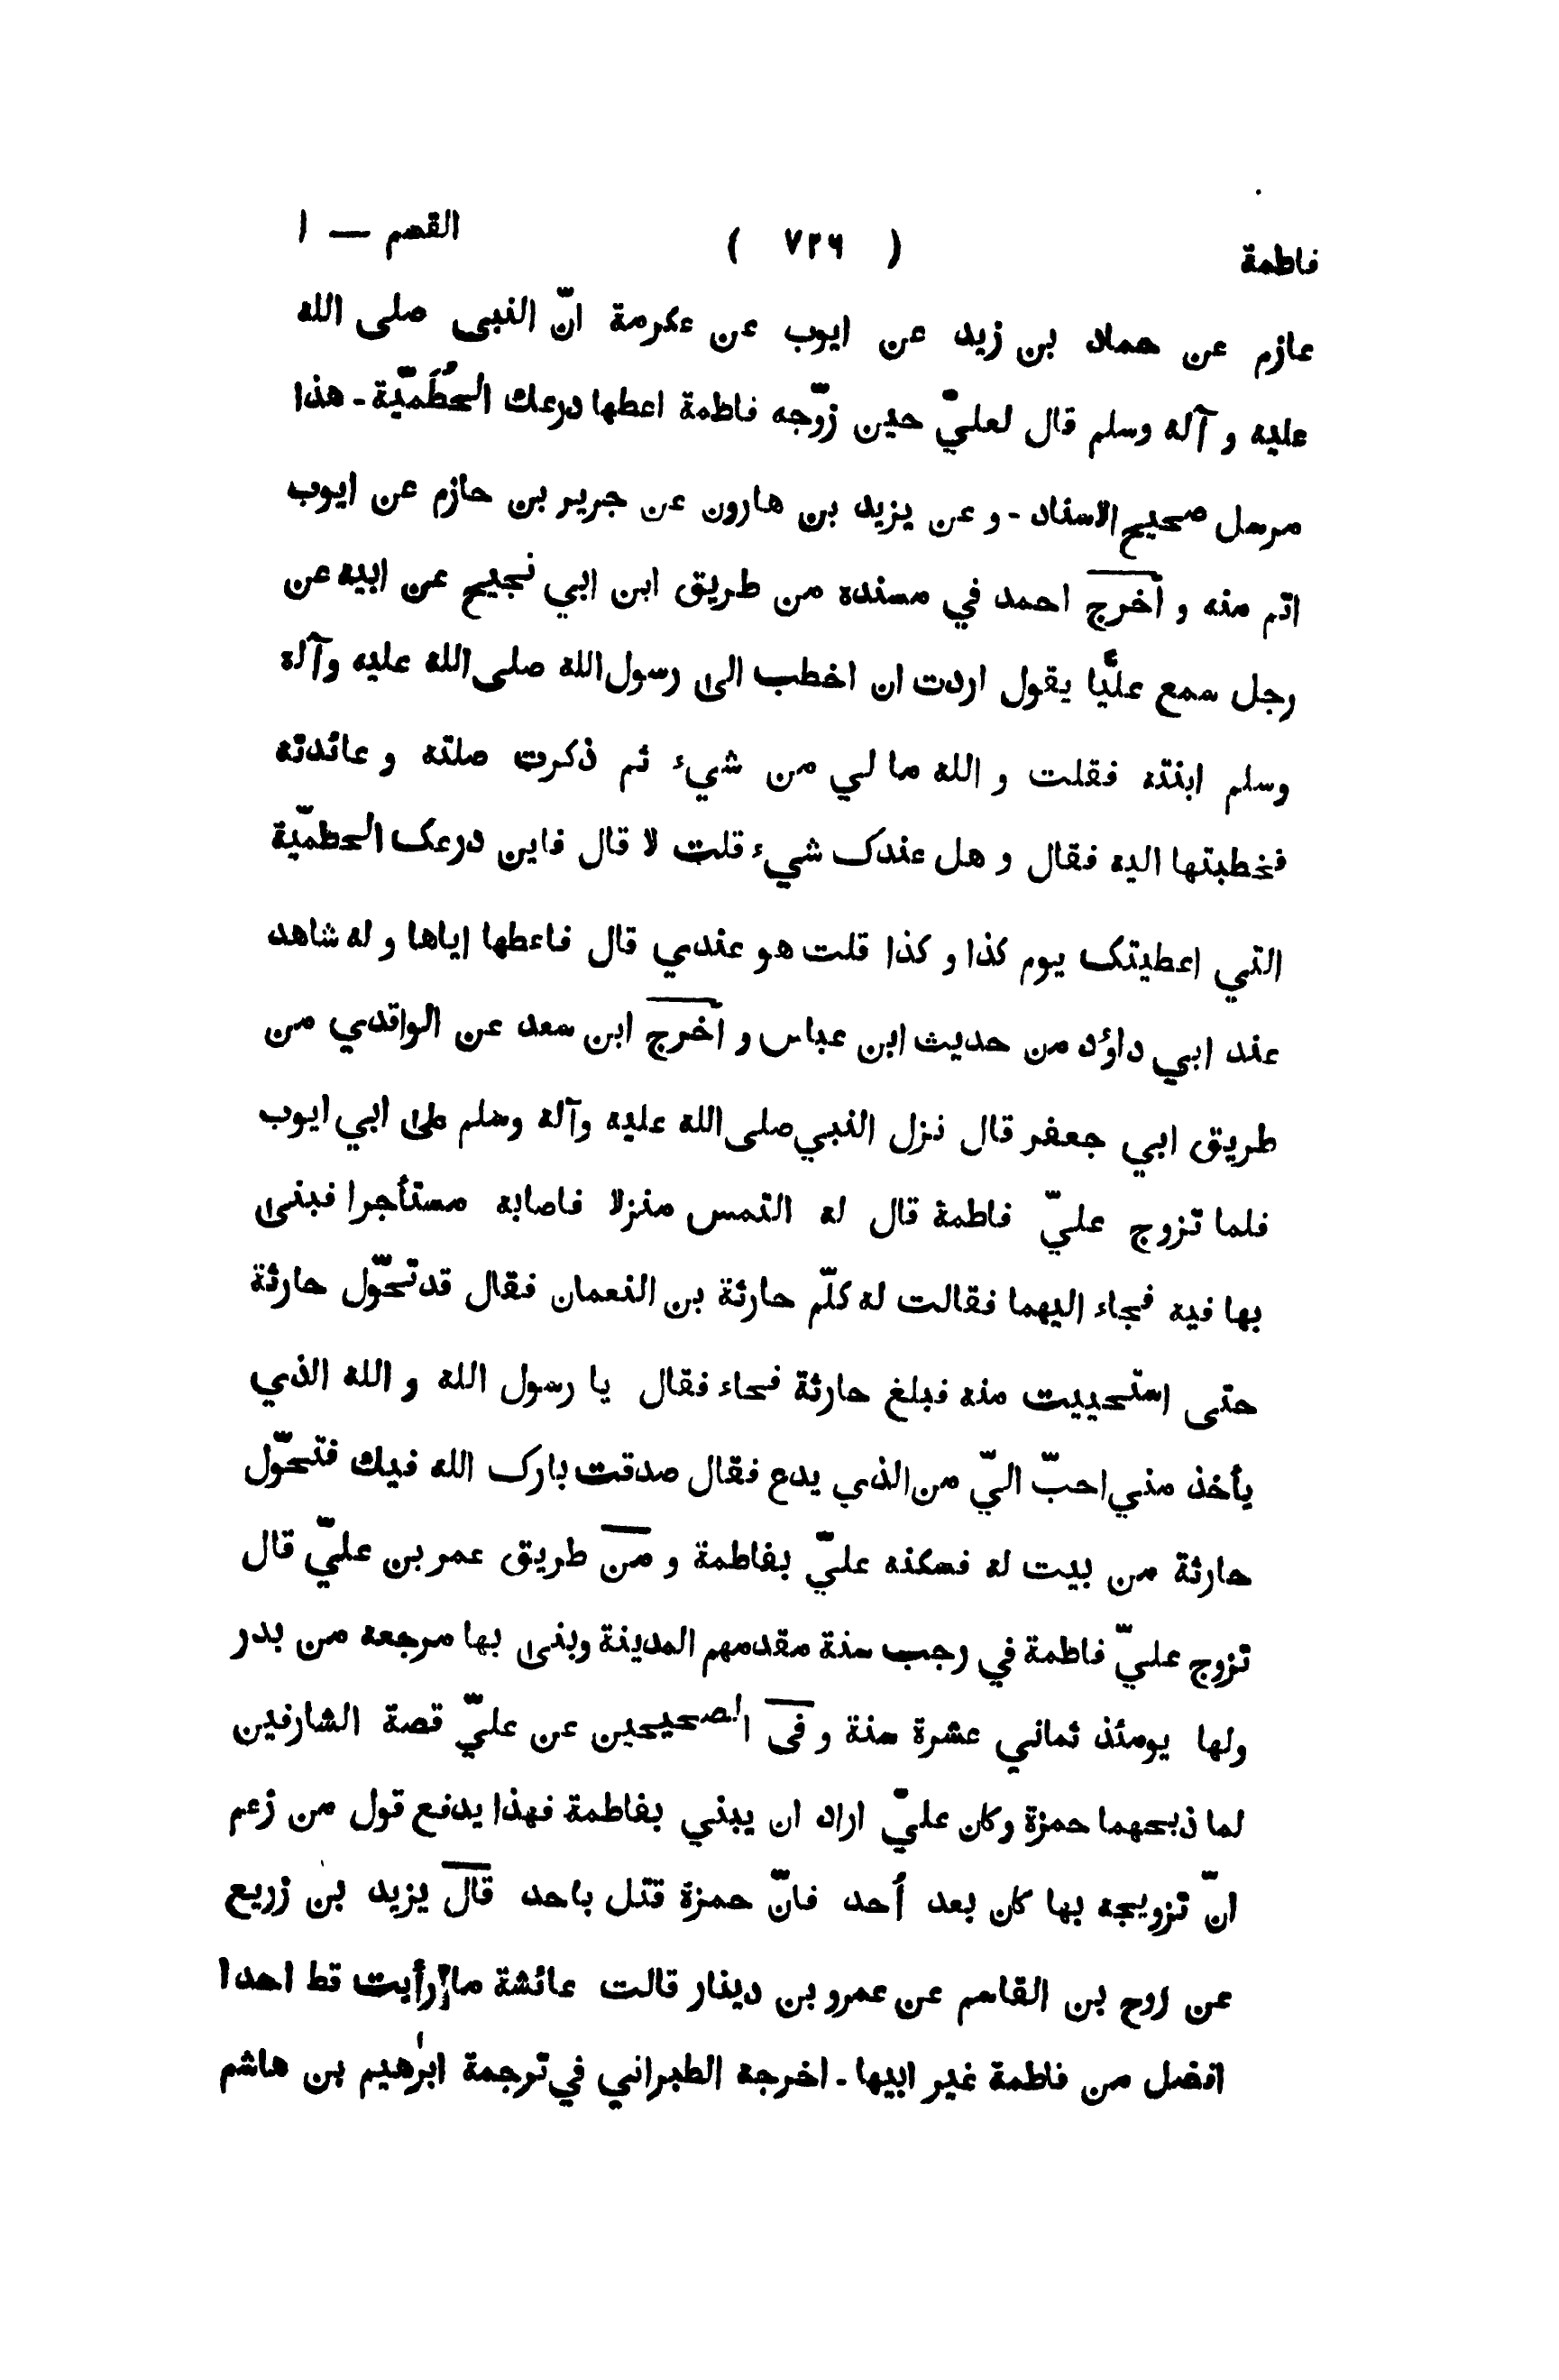 فاطمة ( ٧٢٦ ) القسم — ١
عازم عن حماد بن زيد عن ايوب عن عكرمة انّ النبى صلى الله
عليه و آله وسلم قال لعليّ حين زوّجه فاطمة اعطها درعك الحُطَميّة - هذا
مرسل صحيح الاسناد - و عن يزيد بن هارون عن جرير بن حازم عن ايوب
اتم منه و أخرج احمد في مسنده من طريق ابن ابي نجيح عن ابيه عن
رجل سمع عليًّا يقول اردت ان اخطب الى رسول الله صلى الله عليه وآله
وسلم ابنته فقلت و الله ما لي من شيء ثم ذكرت صلته و عائدته
فخطبتها اليه فقال و هل عندك شيء قلت لا قال فاين درعك الحطميّة
التي اعطيتك يوم كذا و كذا قلت هو عندي قال فاعطها اياها و له شاهد
عند ابي داؤد من حديث ابن عباس و أخرج ابن سعد عن الواقدي من
طريق ابي جعفر قال نزل النبي صلى الله عليه وآله وسلم على ابي ايوب
فلما تزوج عليّ فاطمة قال له التمس منزلا فاصابه مستأجرا فبنى
بها فيه فجاء اليهما فقالت له كلّم حارثة بن النعمان فقال قد تحوّل حارثة
حتى استحييت منه فبلغ حارثة فجاء فقال يا رسول الله و الله الذي
يأخذ مني احبّ اليّ من الذي يدع فقال صدقت بارك الله فيك فتحوّل
حارثة من بيت له فسكنه عليّ بفاطمة و من طريق عمر بن عليّ قال
تزوج عليّ فاطمة في رجب سنة مقدمهم المدينة وبنى بها مرجعه من بدر
ولها يومئذ ثماني عشرة سنة و فى الصحيحين عن عليّ قصة الشارفين
لما ذبحهما حمزة وكان عليّ اراد ان يبني بفاطمة فهذا يدفع قول من زعم
انّ تزويجه بها كان بعد أحد فانّ حمزة قتل باحد قال يزيد بن زريع
عن روح بن القاسم عن عمرو بن دينار قالت عائشة ما رأيت قط احدا
افضل من فاطمة غير ابيها - اخرجه الطبراني في ترجمة ابرٰهيم بن هاشم